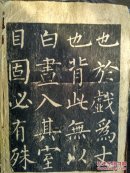 也於戲爲士
也背此無以
白晝入其室
目固必有殊